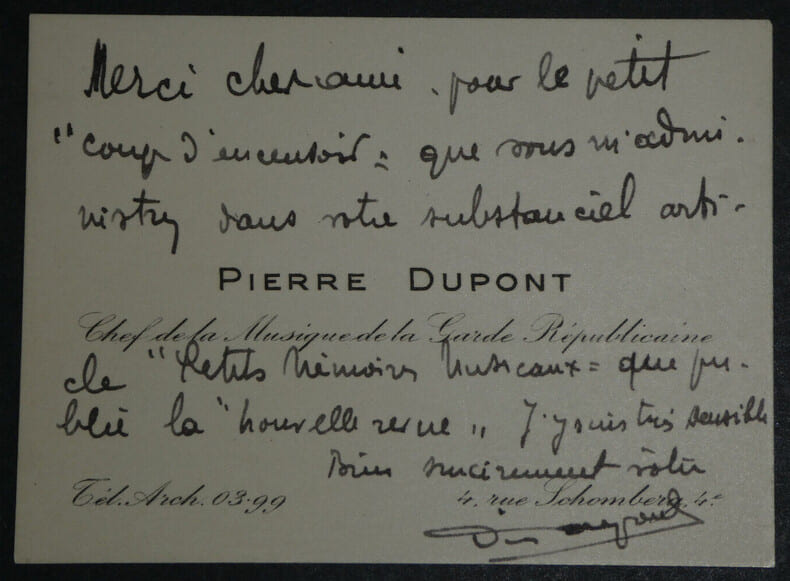 Merci cher ami. pour le petit
"coup d'encensoir" que vous m'admi-
nistrez dans votre substanciel arti-
PIERRE DUPONT
Chef de la Musique de la Garde Républicaine
cle "Petits Mémoires Musicaux" que pu-
blie la "nouvelle revue" J'y suis très sensible
Bien sincèrement vôtre
Tél. Arch. 03-99
4, rue Schomberg. 4e